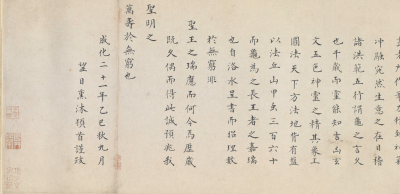 冲融宛然生意之在目稽
諸洪範五行謂龜之言久
也千歲而靈能知吉凶玄
文五色神靈之精其象上
圓法天下方法地背有盤
以法丘山甲虫三百六十
而龜為之長王者之嘉瑞
也自洛水呈書而招理數
於無窮非
聖王之瑞應而何今焉應歲
既久偶而得此誠預兆我
聖明之
萬壽於無窮也
成化二十一年乙巳秋九月
望日 沐頓首謹跋